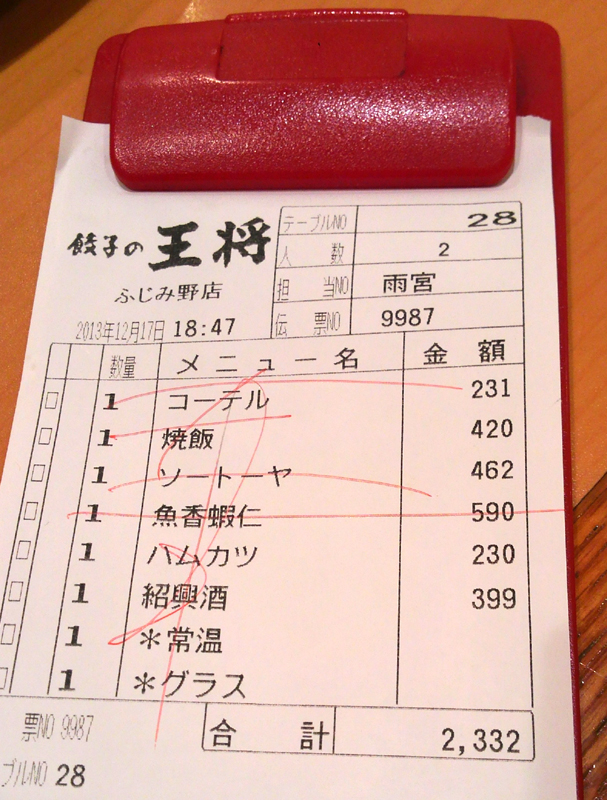 餃子の 王将
ふじみ野店
2013年12月17日 18:47
テーブルNO 28
人 数 2
担 当NO 雨宮
伝 票NO 9987
数量 メニュー名 金 額
1 コーテル 231
1 焼飯 420
1 ソートーヤ 462
1 魚香蝦仁 590
1 ハムカツ 230
1 紹興酒 399
1 *常温
1 *グラス
票NO 9987
合 計 2,332
ブルNO 28